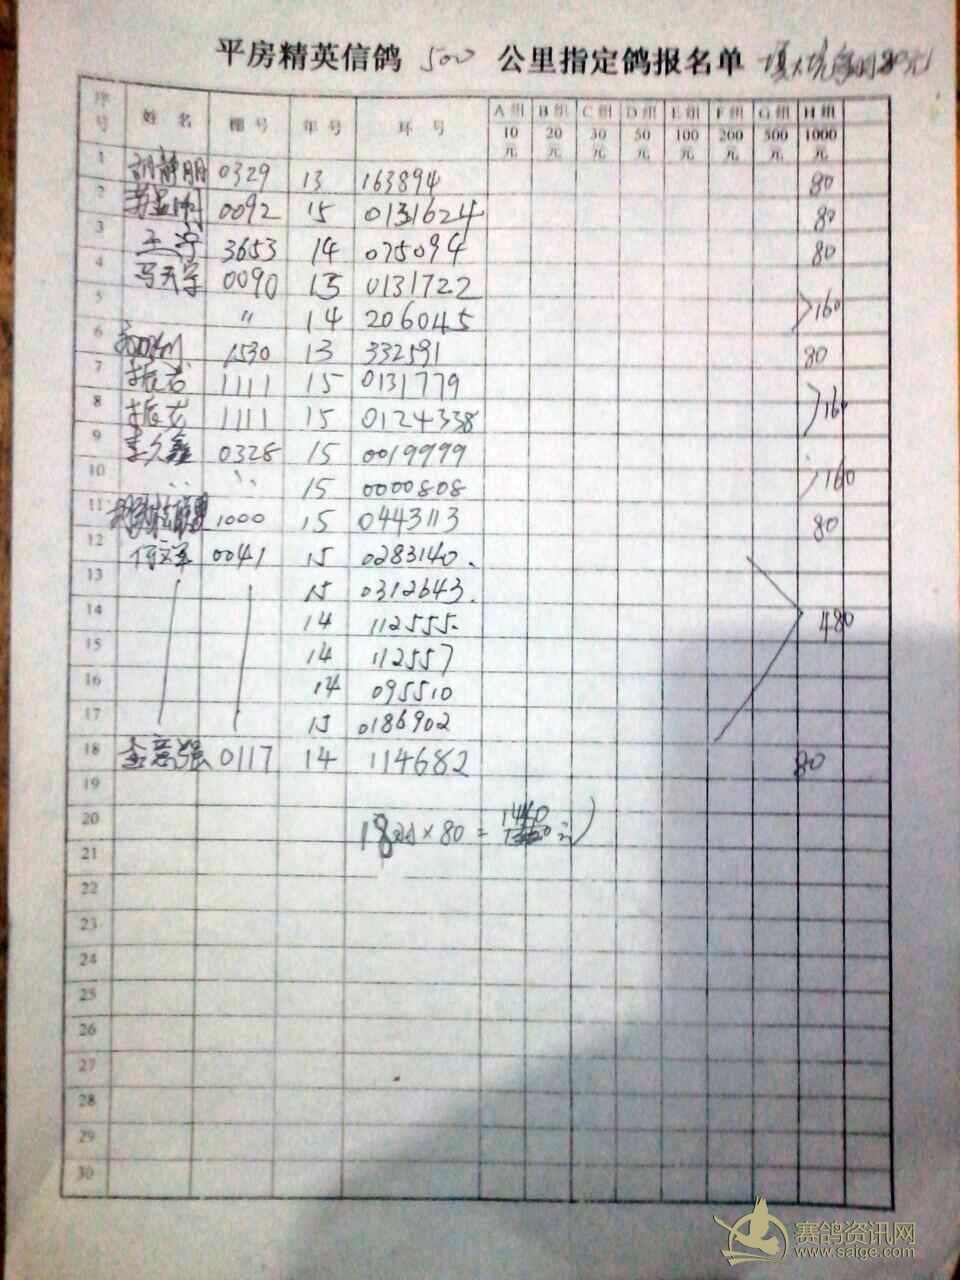 平房精英信鸽 500 公里指定鸽报名单
序号 姓名 棚号 年号 环号 A组 B组 C组 D组 E组 F组 G组 H组
10元 20元 30元 50元 100元 200元 500元 1000元
1 胡静朋 0329 13 163894 80
2 0092 15 0131624 80
3 王宇 3653 14 075094 80
4 马天宇 0090 15 0131722
5 〃 14 206045 160
6 1530 13 332591 80
7 1111 15 0131779
8 1111 15 0124338 160
9 李久鑫 0328 15 0019999
10 〃 〃 15 0000808 160
11 1000 15 0443113 80
12 0041 15 0283140
13 15 0312643
14 14 112555 480
15 14 112557
16 14 095510
17 15 0186902
18 0117 14 114682 80
19
20 18 × 80 = 1440
21
22
23
24
25
26
27
28
29
30
赛鸽资讯网
www.saige.com